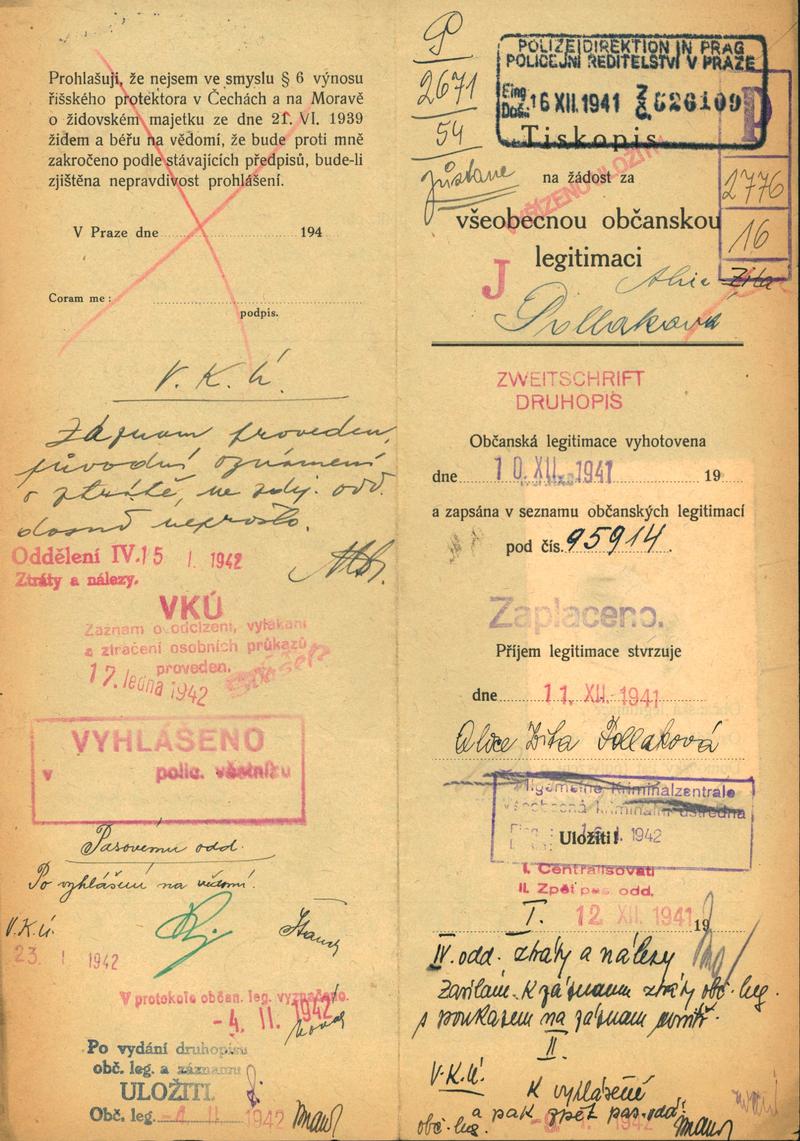 Prohlašuji, že nejsem ve smyslu § 6 výnosu
říšského protektora v Čechách a na Moravě
o židovském majetku ze dne 21. VI. 1939
židem a béřu na vědomí, že bude proti mně
zakročeno podle stávajících předpisů, bude-li
zjištěna nepravdivost prohlášení.
V Praze dne 194
Coram me :
podpis.
V. K. Ú.
Záznam proveden,
původní oznámení
o ztrátě, ve zdej. odd.
dosud neprošlo.
Oddělení IV. 15 I. 1942
Ztráty a nálezy.
VKÚ
Záznam o odcizení, vylákání
a ztracení osobních průkazů
proveden.
17. ledna 1942
VYHLÁŠENO
v polic. věstníku
Pasovému odd.
Po vyhlášení na vědomí.
V.K.Ú.
23. I 1942
V protokole občan. leg. vyznačeno.
-4. II. 1942
Po vydání druhopisu
obč. leg. a záznamu
ULOŽITI.
Obč. leg. -4 II 1942
P
2671
54
zůstane
POLIZEIDIREKTION IN PRAG
POLICEJNÍ ŘEDITELSTVÍ V PRAZE
Eing.
Doš.: 16 XII. 1941 Z 626109
P
2776
16
Tiskopis
na žádost za
všeobecnou občanskou
legitimaci
J
Alice Zita
Pollaková
ZWEITSCHRIFT
DRUHOPIS
Občanská legitimace vyhotovena
dne 10. XII. 1941 19
a zapsána v seznamu občanských legitimací
pod čís. 95914.
Zaplaceno.
Příjem legitimace stvrzuje
dne 11. XII. 1941
Alice Zita Pollaková
Allgemeine Kriminalzentrale
Všeobecná kriminální ústředna
Uložiti! 1942
I. Centralisovati
II. Zpět pas. odd.
I. 12 XII. 1941 19
IV. odd. ztráty a nálezy
Zasílám k záznamu ztráty obč. leg.
s poukazem na záznam uvnitř.
II.
V.K.Ú. K vyhlášení
a pak zpět pas. odd.
obč. leg. 1942